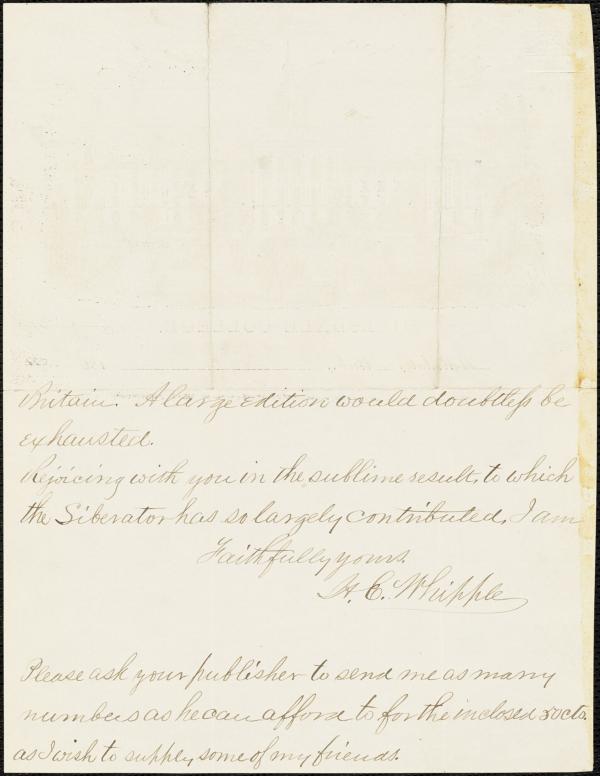 Britain. A large edition would doubtless be
exhausted.
Rejoicing with you in the sublime result, to which
the Liberator has so largely contributed, I am
Faithfully yours.
H. C. Whipple
Please ask your publisher to send me as many
numbers as he can afford to for the inclosed 50cts.
as I wish to supply some of my friends.